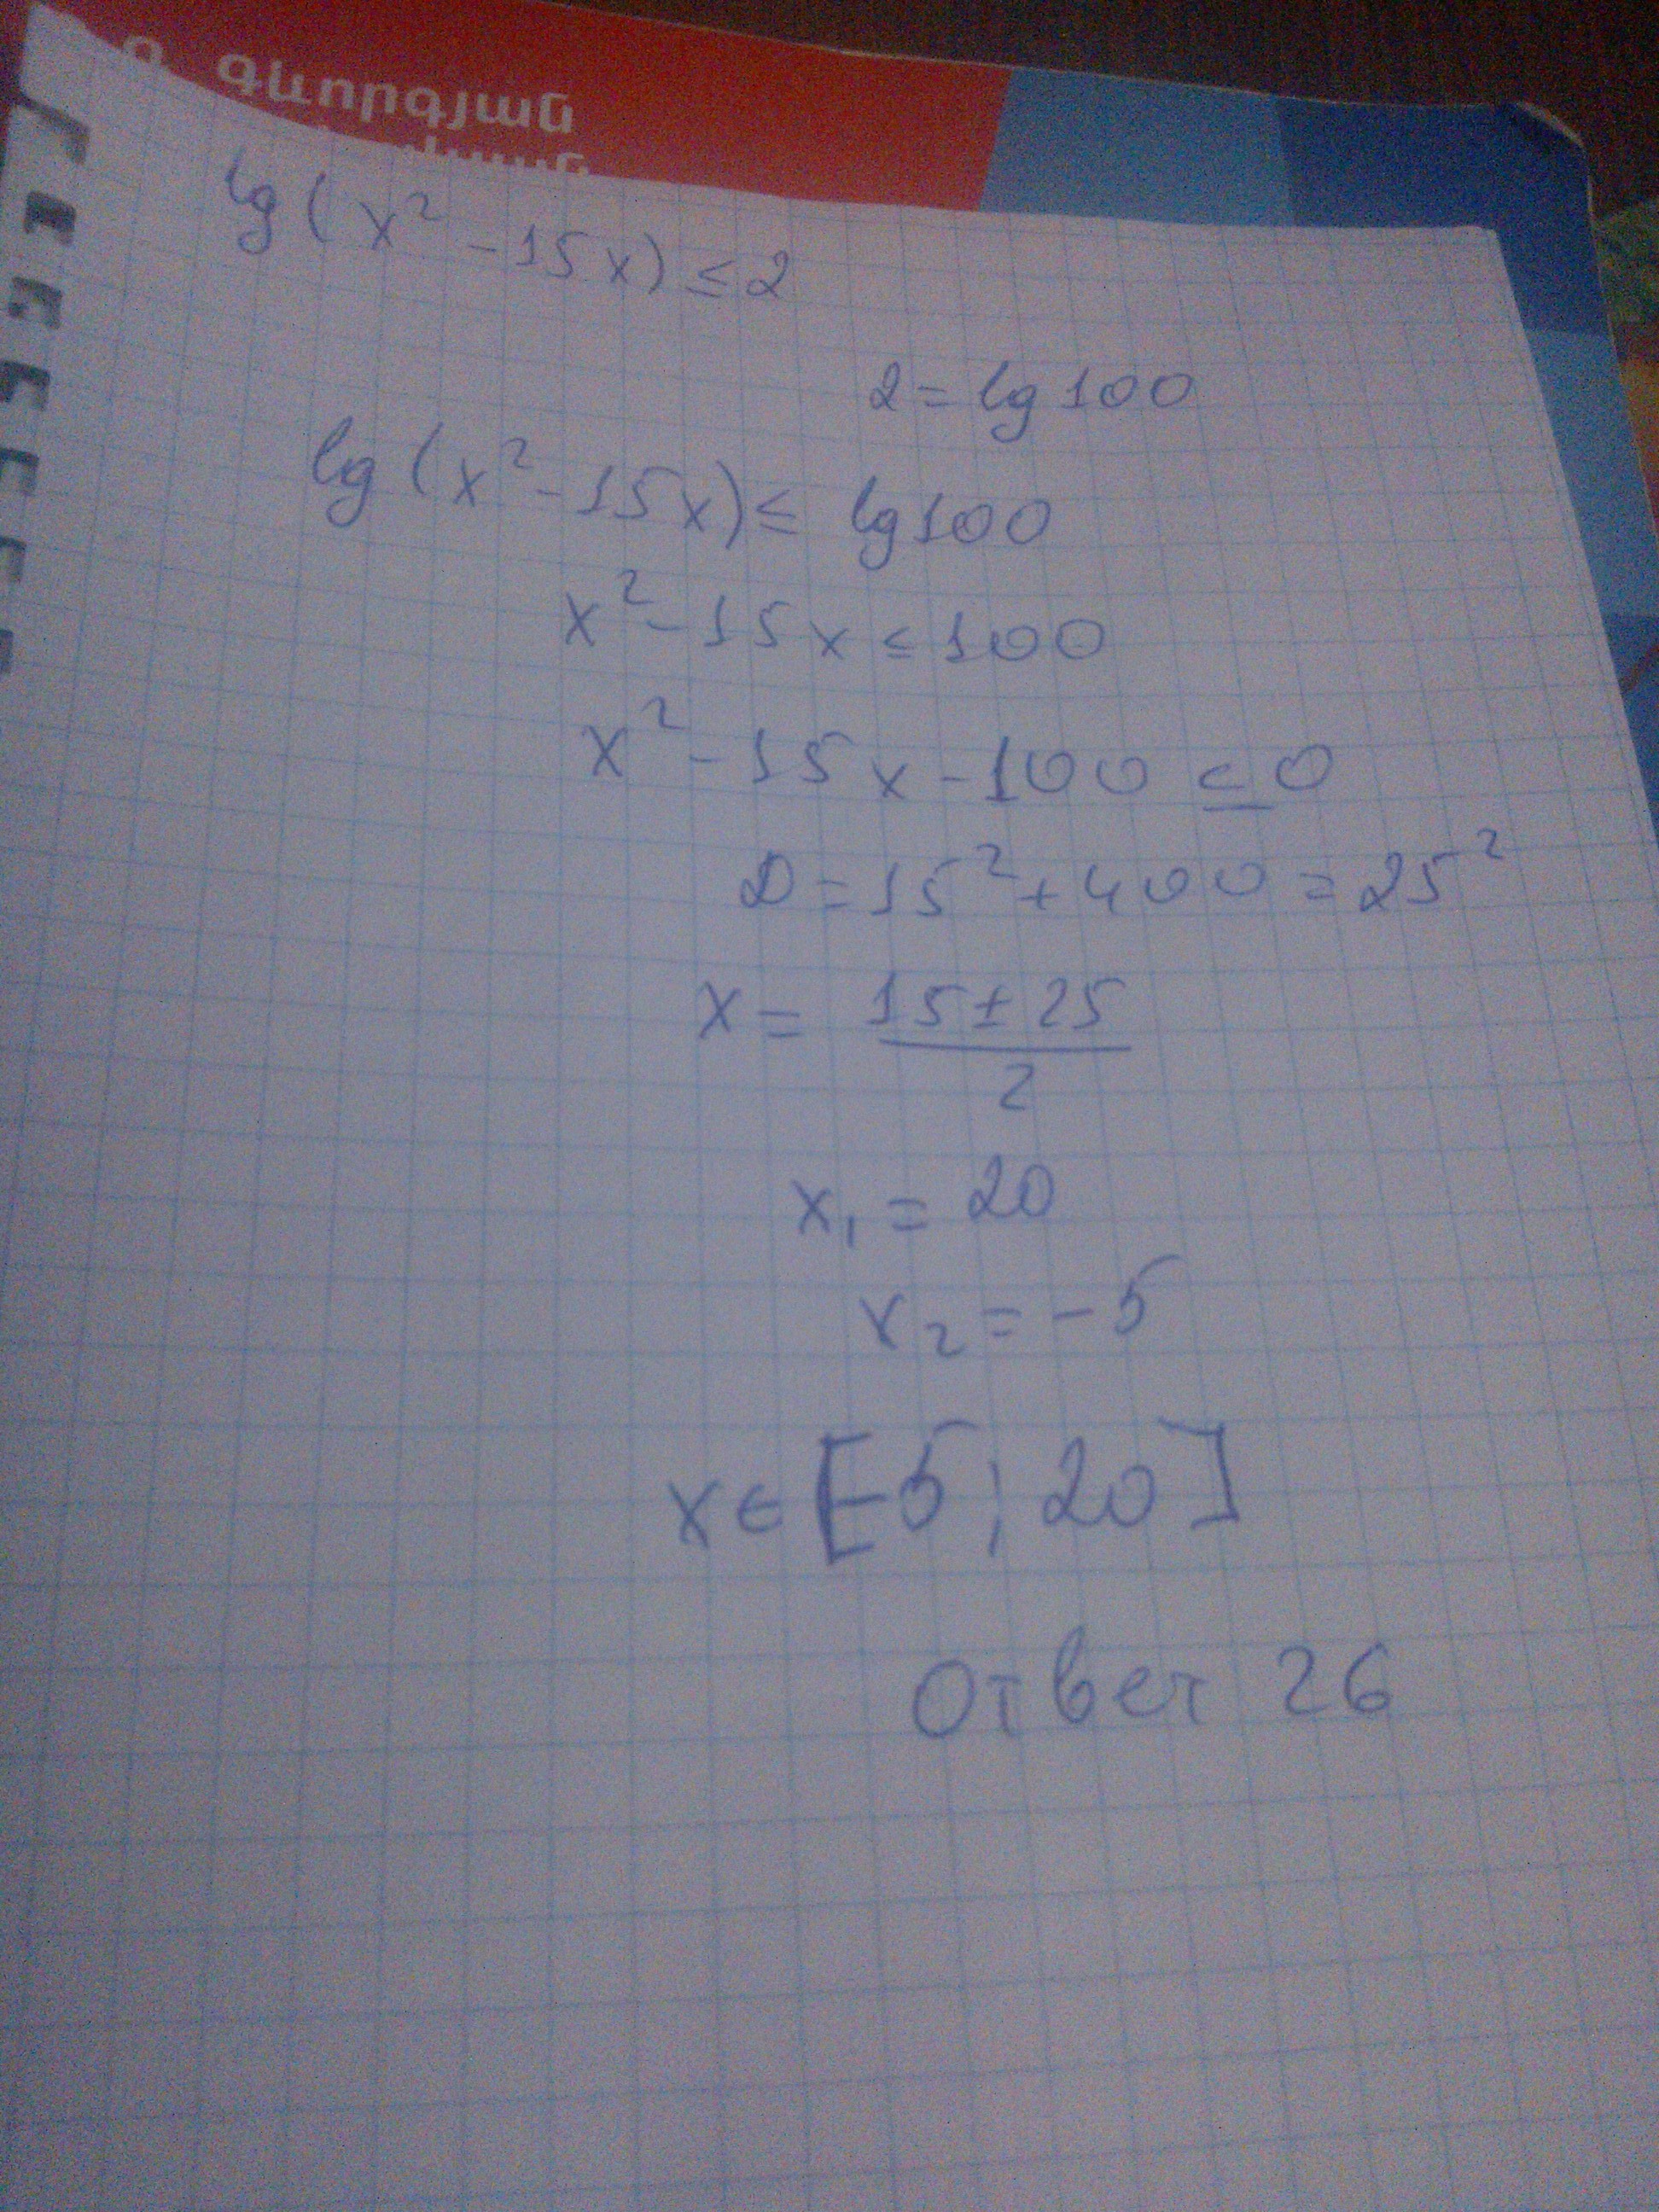 գևորգյան
lg(x² - 15x) ≤ 2
2 = lg 100
lg(x² - 15x) ≤ lg 100
x² - 15x ≤ 100
x² - 15x - 100 ≤ 0
D = 15² + 400 = 25²
x = (15 ± 25)/2
x₁ = 20
x₂ = -5
x ∈ [-5; 20]
Ответ 26